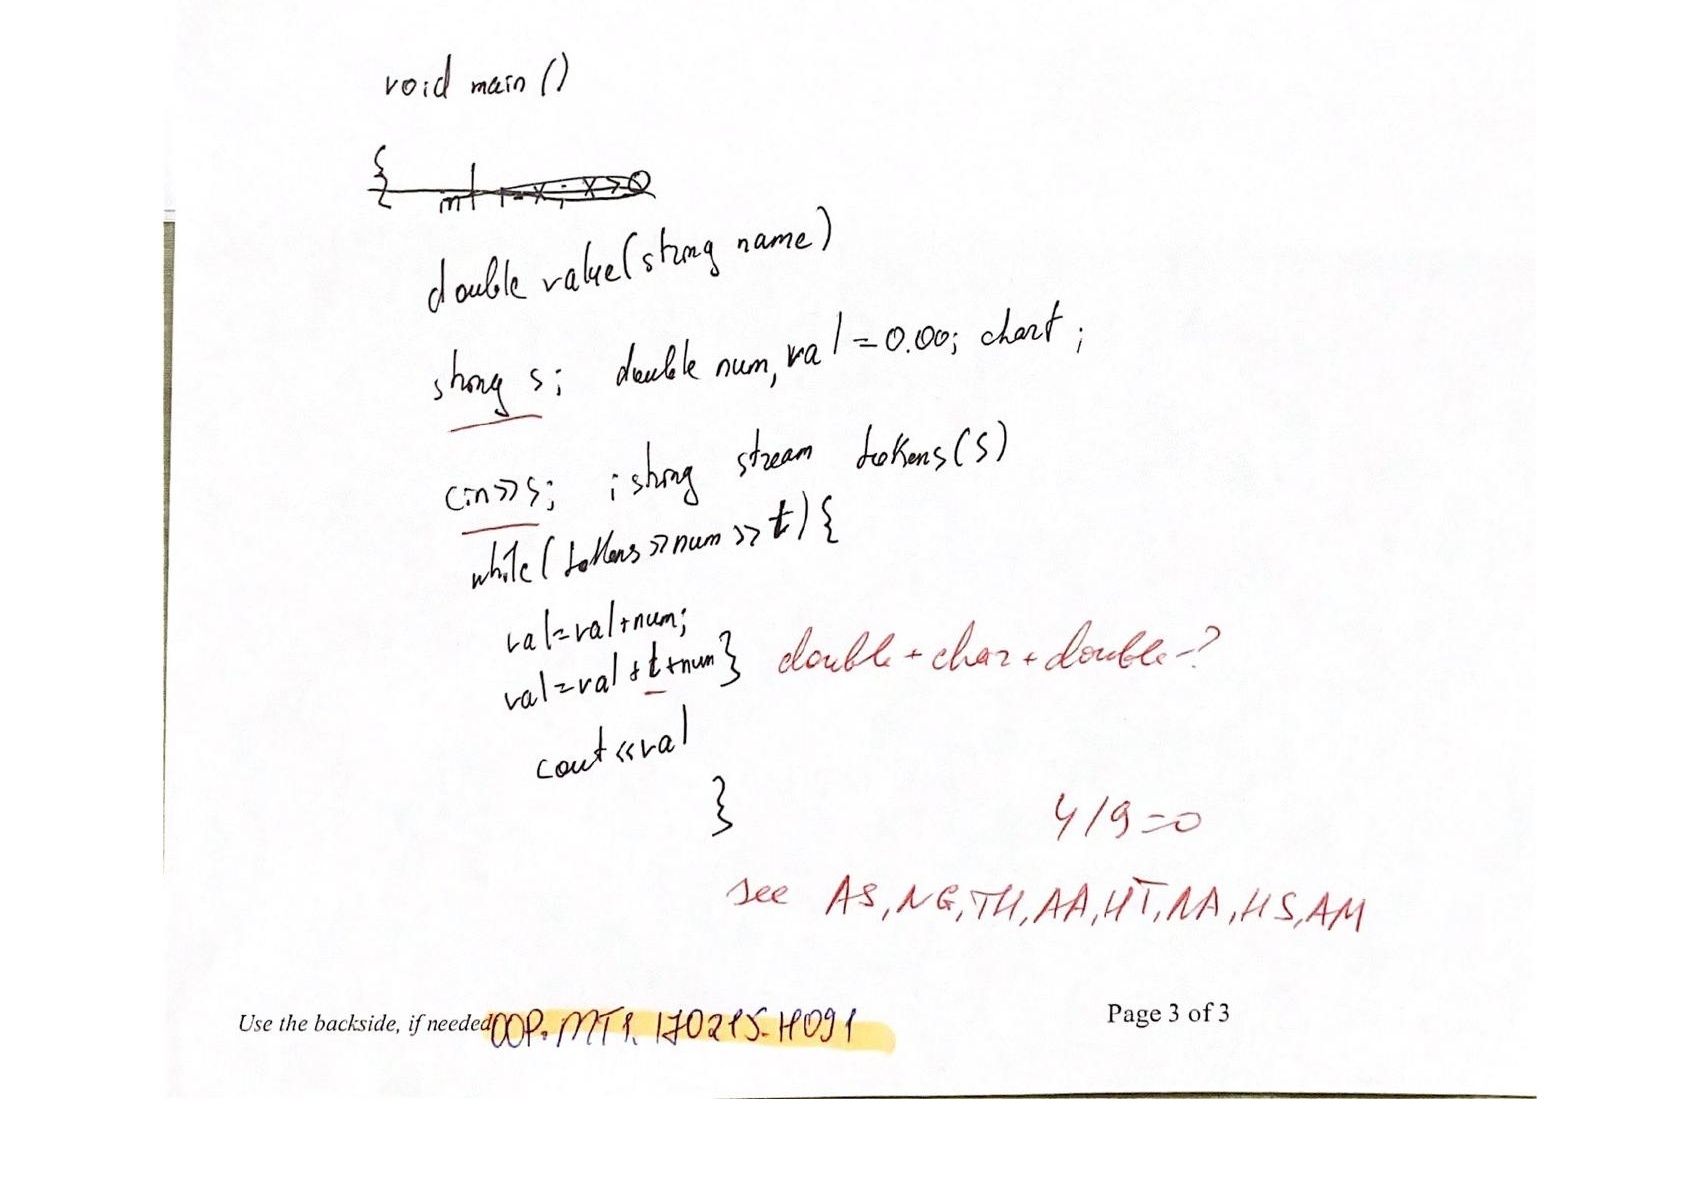 void main ()
{
double value(string name)
string s; double num, val = 0.00; char t ;
cin>>s; istring stream tokens(s)
while ( tokens >> num >> t) {
val=val+num;
val=val + t+num } double + char + double -?
cout <<val
}
4/9=0
see AS, NG, TH, AA, HT, NA, HS, AM
Use the backside, if needed OOP. MT1. 170215. H091
Page 3 of 3